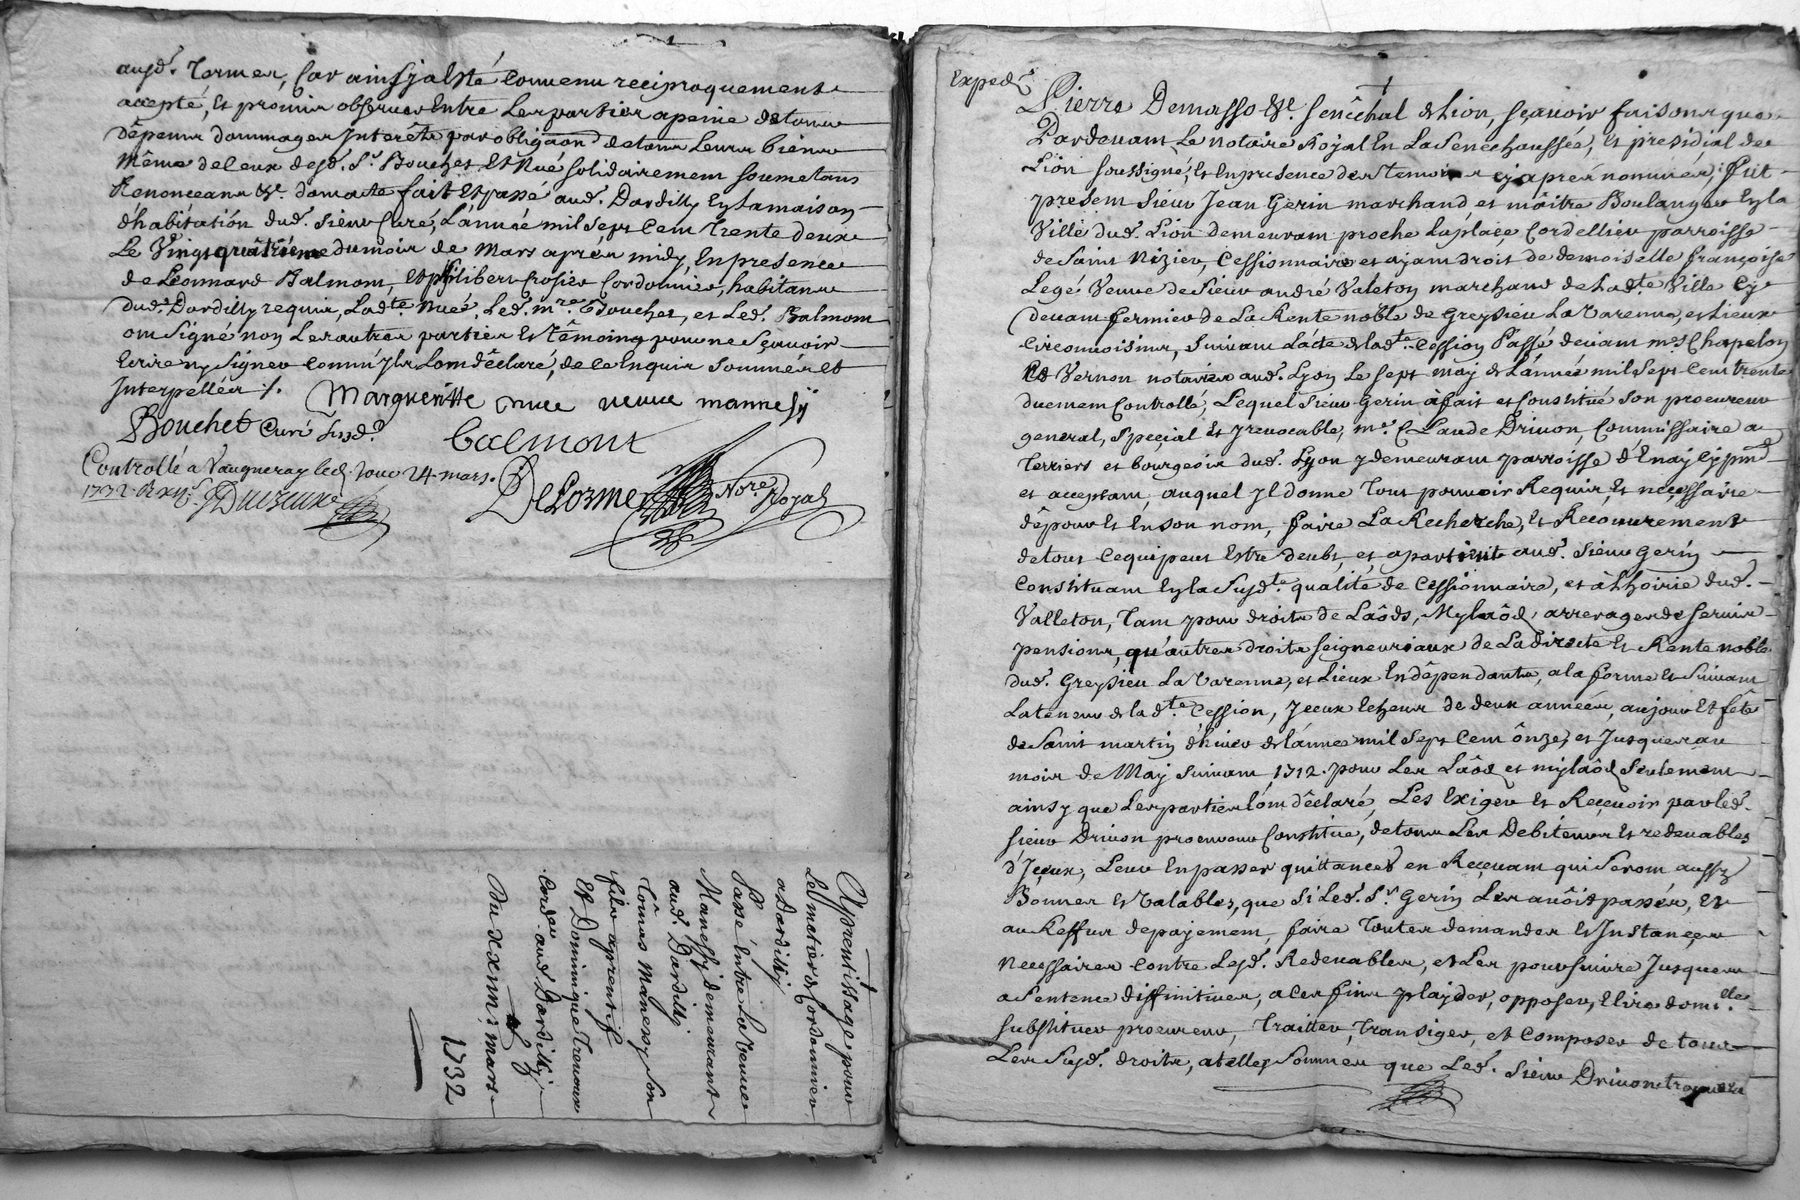 ausd. Termes, Car ainsy a Esté Convenu reciproquement
accepté, Et promis observer Entre Les parties a peine de tous
dêpens dommages Interêts par obligaon de tous Leurs biens
Même de Ceux desd. Sr. Bouchet Et Nué solidairement soumetans
Renonceans &c. dont acte fait Et passé aud. Dardilly En la maison
d'habitation dud. Sieur Curé, L'année mil sept Cent Trente deux
Le Vingt quâtriéme du mois de Mars aprés midy, En presence
de Leonnard Balmont, Et philibert Crosier Cordonnier, habitans
dud. Dardilly requis, Ladte. Nué, Led. mre. Bouchet, et Led. Balmont
ont Signé non Les autres parties Et têmoing pour ne Sçavoir
Ecrire ny Signer Comm'Ils L'ont dêclaré, de ce Enquis Sommés Et
Interpellés ./.
Margueritte nuee veuve mannessÿ
Bouchet Curé susd.
balmont
Controllé a Vaugneray led. Jour 24 mars
1732. Rx
DeLorme Nore. Royal
Apprentissage pour
Le metier de Cordonnier
a Dardilly
Passé Entre La Veuve
Manessy demeurant
aud. Dardilly
Tômas Manessy son
fils apprentif
Et Dominique
Cordier aud. Dardilly
Du xxiiii mars
1732
Exped.
Pierre Demasso &c. Senêchal de Lion, sçavoir faisons que
Pardevant Le notaire Royal En La Senéchaussée, Et presidial de
Lion soussigné, Et En presence des temoins cy aprés nommés, fut
present Sieur Jean Gerin marchand et maître Boulanger En la
Ville dud. Lion demeurant proche La place Cordellier parroisse
de Saint Nizier, Cessionnaire et ayant droit de demoiselle françoise
Legé Veuve de Sieur andré Valeton marchand de Ladte. Ville Cy
devant fermier de La Rente noble de Greysieu La Varenne, et Lieux
Circonvoisins, Suivant L'acte de Ladte. Cession Passé devant mes. Chapelon
Et Vernon notaires aud. Lyon Le sept may de L'année mil Sept Cent trente
duement Controllé, Lequel Sieur Gerin à fait et Constitué Son procureur
general, Special Et Irrevocable, me. Claude Drivon, Commissaire a
Terriers et bourgeois dud. Lyon y demeurant parroisse d'Enay Cy pnt
et acceptant, auquel Il donne Tout pouvoir Requis, Et necessaire
de pour Et En son nom, faire La Recherche, Et Recouvrement
de tout Ce qui peut Estre deubt, et apartenir aud. Sieur Gerin
Constituant En la Susdte. qualité de Cessionnaire, et à L'hoirie dud.
Valleton, Tant pour droits de Laôds, Mylaôd, arrerages de servis
pensions, qu'autres droits seigneuriaux de La directe Et Rente noble
dud. Greysieu La Varenne, et Lieux En dêpendants, a la forme Et Suivant
La teneur de Ladte. Cession, Iceux Echeus de deux années, au jour Et fête
de Saint martin d'hiver de L'année mil Sept Cent ônze, et Jusques au
mois de May Suivant 1712. pour Les Laôd et mylaôd Seulement
ainsy que Les parties L'ont dêclaré, Les Exiger Et Recevoir par led.
sieur Drivon procureur Constitué, de tous Les Debiteurs Et redevables
d'Iceux, Leur En passer quittances en Recevant qui Seront aussy
Bonnes Et Valables, que Si Led. Sr. Gerin Les avoit passés, Et
au Reffus de payement, faire Toutes demandes Et Instances
Necessaires Contre Lesd. Redevables, et Les poursuivre Jusques
a Sentence diffinitives, a Ces fins playder, opposer, Elire domlle.
substituer procureur, Traitter, Transiger, et Composer de tous
Les Susd. droits, a telles Sommes que Led. Sieur Drivon trouvera